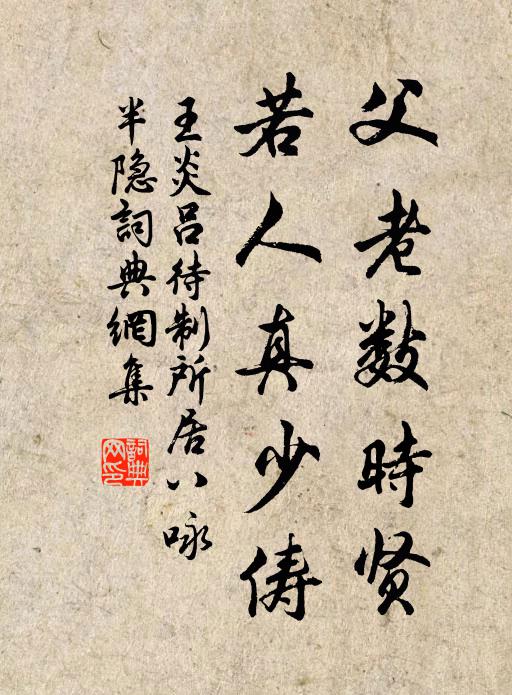 父老数時贤
若人真少俦
王炎吕待制所居八咏
半隐詞典網集
詞典网印